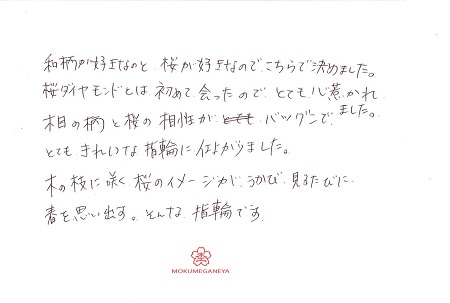 和柄が好きなのと、桜が好きなので、こちらで決めました。
桜ダイヤモンドとは、初めて会ったので、とても心惹かれました。
木目の柄と桜の相性が とても バツグンで、
とてもきれいな指輪に仕上がりました。
木の枝に咲く桜のイメージがうかび、見るたびに、
春を思い出す。そんな、指輪です
MOKUMEGANEYA